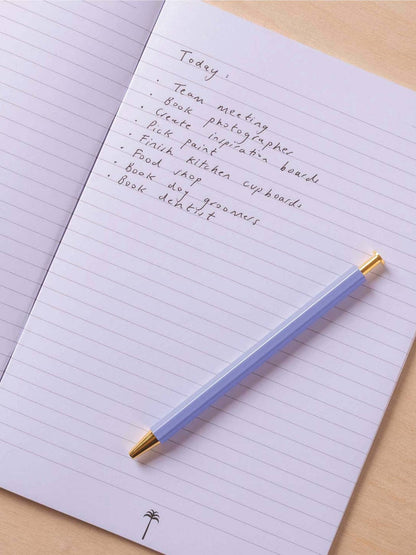 Today:
• Team meeting
• Book photographer
• Create inspiration boards
• Pick paint
• Finish kitchen cupboards
• Food shop
• Book dog groomers
• Book dentist